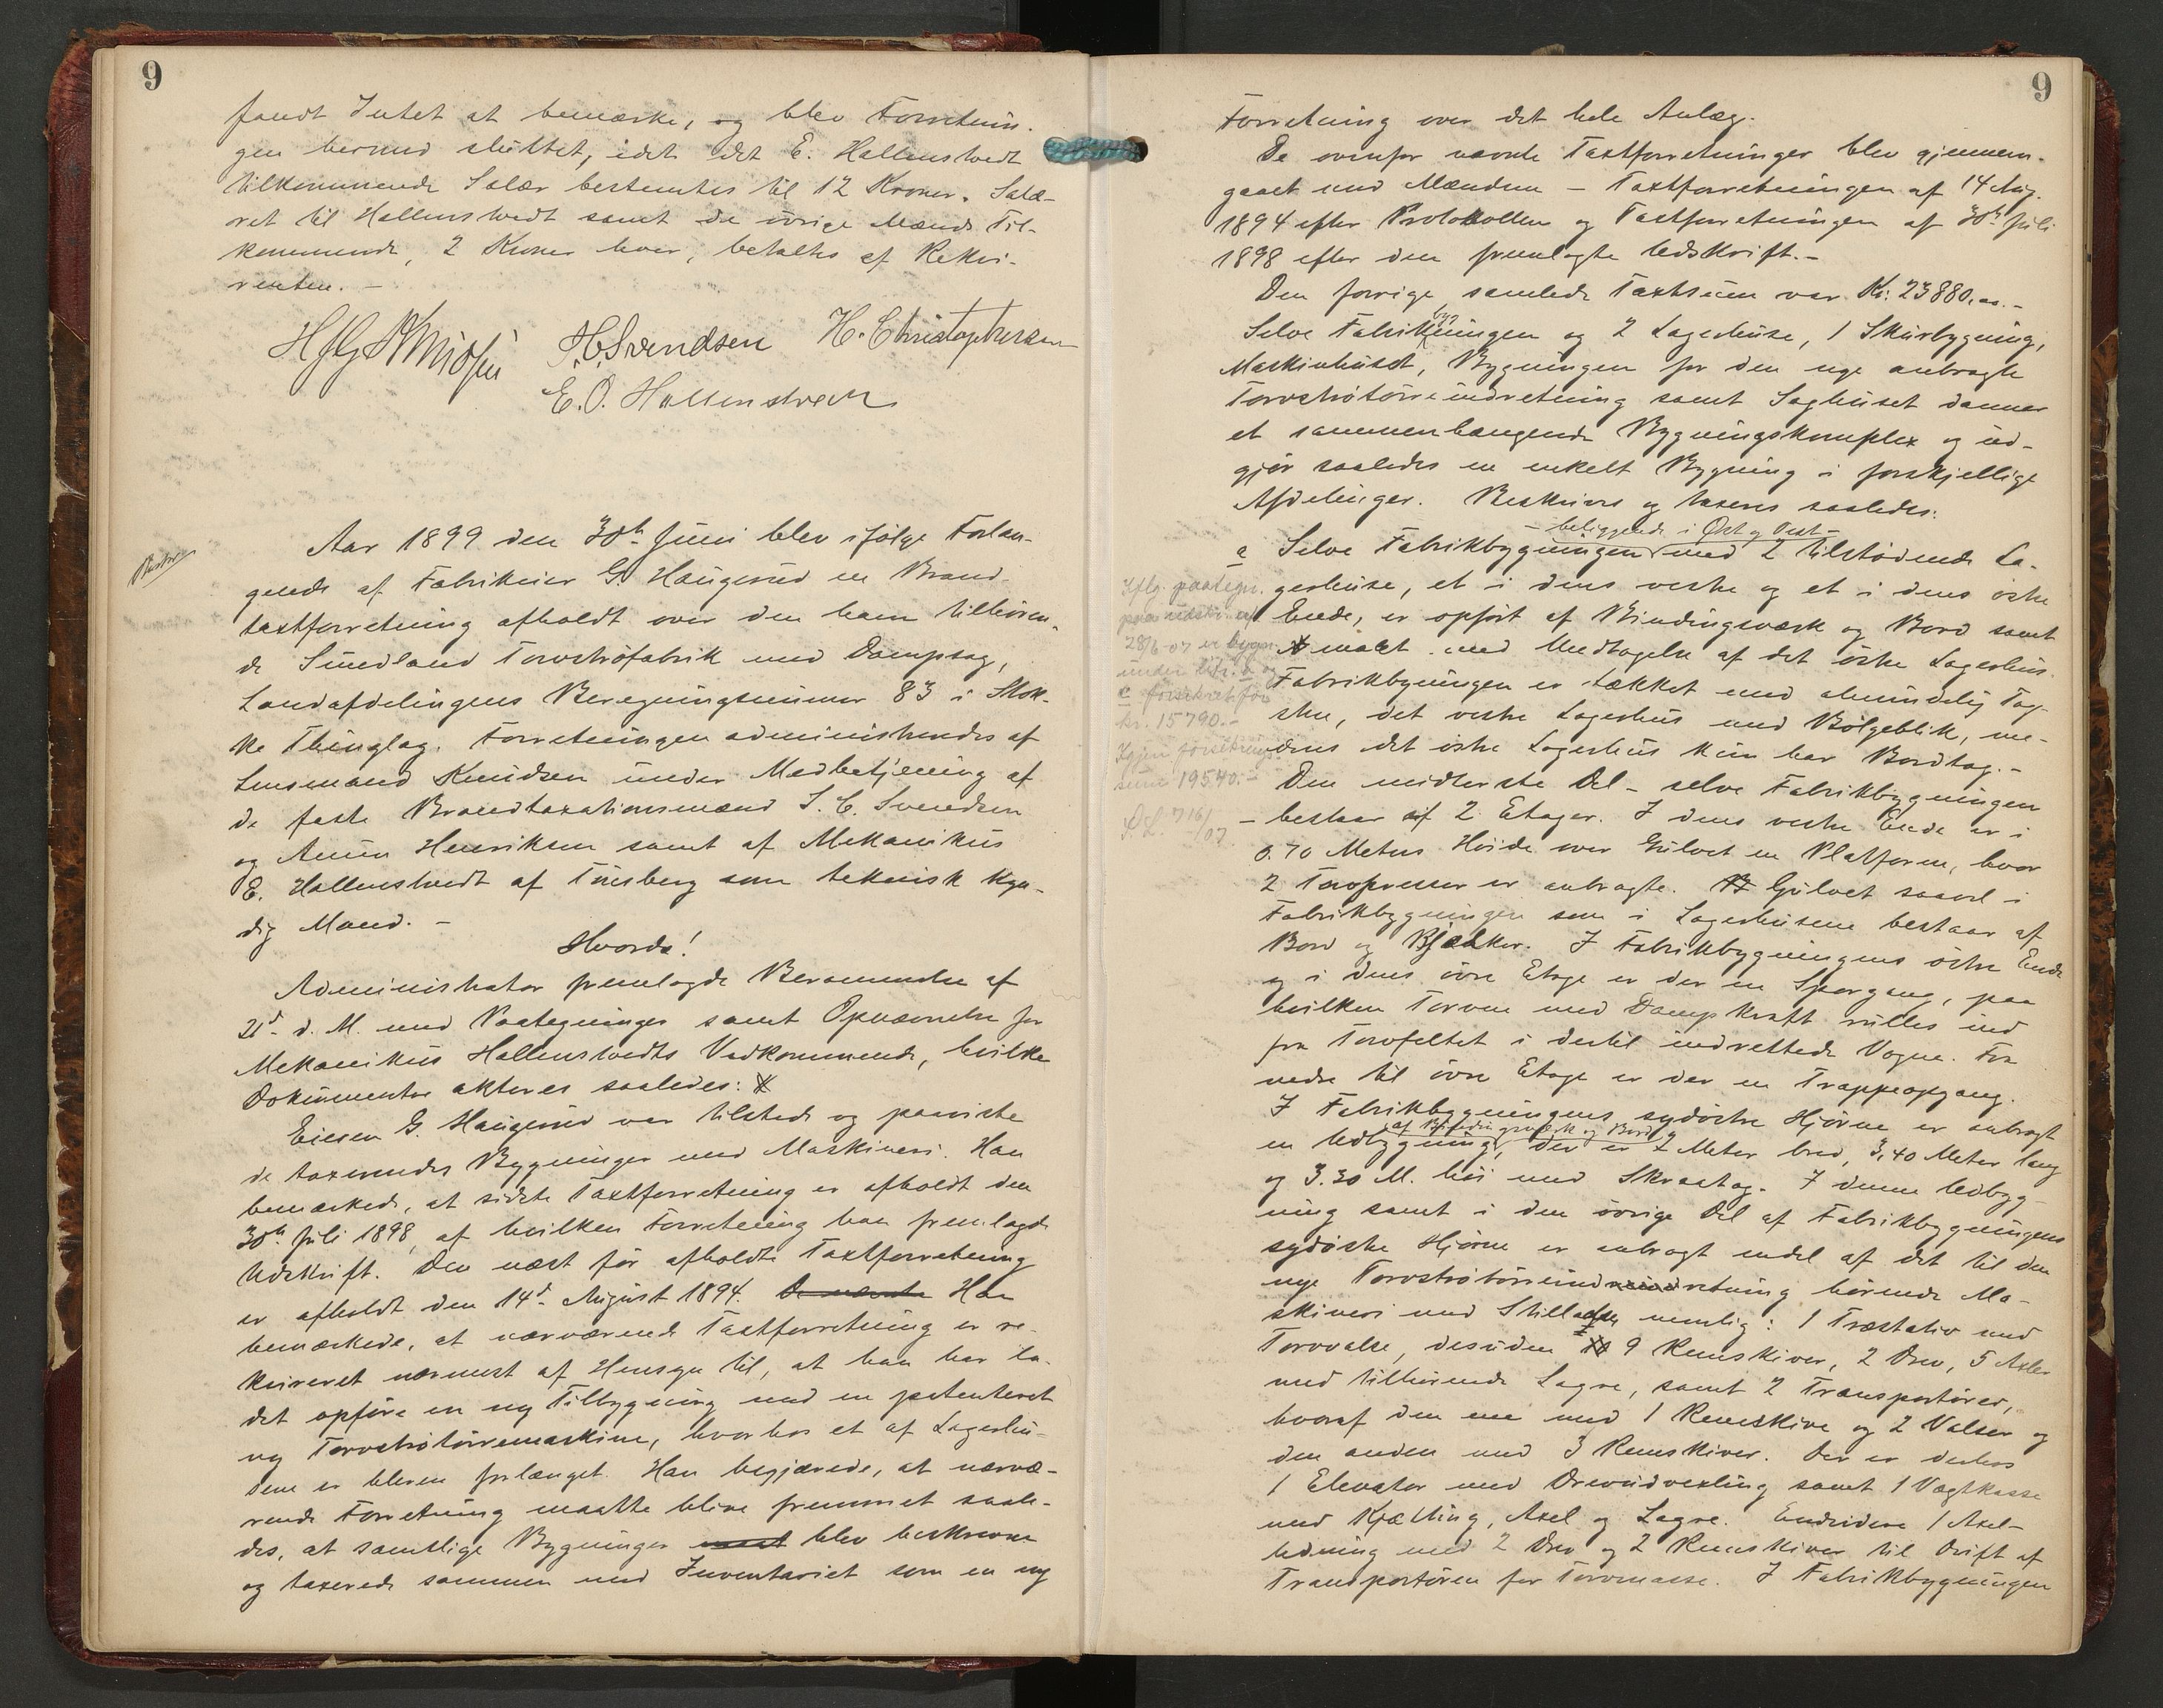 9
fandt Intet at bemærke, og blev Forretnin-
gen hermed sluttet, idet det E. Hallenstvedt
tilkommende Salær bestemtes til 12 Kroner. Salæ-
ret til Hallenstvedt samt de øvrige Mænds Til-
kommende, 2 Kroner hver, betaltes af Rekvi-
renten. –
H. Svendsen H. Christophersen
E. O. Hallenstvedt
Aar 1899 den 30te Juni blev ifølge Forlan-
gende af Fabrikeier G. Haugerud en Brand-
taxtforretning afholdt over den ham tilhøren-
de Sundland Torvstrøfabrik med Dampsag,
Landafdelingens Beregningsnummer 83 i Stok-
ke Thinglag. Forretningen administreredes af
Lensmand Knudsen under Medbetjening af
de faste Brandtaxationsmænd S. C. Svendsen
og Anun Henriksen samt af Mekanikus
E. Hallenstvedt af Tønsberg som teknisk kyn-
dig Mand. –
Hvorda!
Administrator fremlagde Berammelse af
21de d. M. med Paategninger samt Opnævnelse for
Mekanikus Hallenstvedts Vedkommende, hvilke
Dokumenter akteres saaledes:
Eieren G. Haugerud var tilstede og paaviste
de taxerendes Bygninger med Maskineri. Han
bemærkede, at sidste Taxtforretning er afholdt den
30te Juli 1898, af hvilken Forretning han fremlagde
Udskrift. Den næst før afholdte Taxtforretning
er afholdt den 14de August 1894. De nævnte Han
bemærkede, at nærværende Taxtforretning er re-
kvireret nærmest af Hensyn til, at han har la-
det opføre en ny Tilbygning med en patenteret
ny Torvstrøtørremaskine, hvorhos et af Lagerhu-
sene er bleven forlænget. Han begjærede, at nærvæ-
rende Forretning maatte blive fremmet saale-
des, at samtlige Bygninger blev beskrevne
og taxerede sammen med Inventariet som en ny
9
Forretning over det hele Anlæg.
De ovenfor nævnte Taxtforretninger blev gjennem-
gaaet med Mændene – Taxtforretningen af 14 Aug.
1894 efter Protokollen og Taxtforretningen af 30te Juli
1898 efter den fremlagte Udskrift. –
Den forrige samlede Taxtsum var Kr: 23880,00. –
Selve Fabrikbygningen og 2 Lagerhuse, 1 Skurbygning,
Maskinhuset, Bygningen for den nye anbragte
Torvstrøtørreindretning samt Saghuset danner
et sammenhængende Bygningskomplex og ud-
gjør saaledes en enkelt Bygning i forskjellige
Afdelinger. Beskrives og taxeres saaledes:
– beliggende i Øst og Vest –
a Selve Fabrikbygningen med 2 tilstødende La-
gerhuse, et i dens vestre og et i dens østre
Ende, er opført af Bindingsværk og Bord samt
malet med Undtagelse af det østre Lagerhus.
Fabrikbygningen er tækket med almindelig Tag-
sten, det vestre Lagerhus med Bølgeblik, me-
dens det østre Lagerhus kun har Bordtag. –
Iflg. paategn.
28/6-07 er bygn.
under litr. a og
c forsikret for
kr. 15790.–
Igjen forsikrings-
sum 19540.–
Den midterste Del – selve Fabrikbygningen
– bestaar af 2 Etager. I dens vestre Ende er i
0.70 Meters Høide over Gulvet en Platform, hvor
2 Torvpresser er anbragte. Gulvet saavel i
Fabrikbygningen som i Lagerhusene bestaar af
Bord og Bjælker. I Fabrikbygningens østre Ende
og i dens øvre Etage er der en Sporgang, paa
hvilken Torven med Dampkraft rulles ind
fra Torvfeltet i dertil indrettede Vogne. Fra
nedre til øvre Etage er der en Trappeopgang.
I Fabrikbygningens sydøstre Hjørne er anbragt
af Bindingsværk og Bord
en Udbygning, der er 2 Meter bred, 3,40 Meter lang
og 3.30 M. høi med Skraatag. I denne Udbyg-
ning samt i den øvrige Del af Fabrikbygningens
sydøstre Hjørne er anbragt endel af det til den
nye Torvstrøtørreindretning hørende Ma-
skineri med Stillads nemlig: 1 Træstativ med
Torvvalse, desuden 9 Remskiver, 2 Drev, 5 Axler
med tilhørende Lagre, samt 2 Transportører,
hvoraf den ene med 1 Remskive og 2 Valser og
den anden med 3 Remskiver. Der er derhos
1 Elevator med Drevudvexling samt 1 Vægtkasse
med Kjætting, Axel og Lagre. Endvidere 1 Axel-
ledning med 2 Drev og 2 Remskiver til Drift af
Transportøren for Torvmasse. I Fabrikbygningen